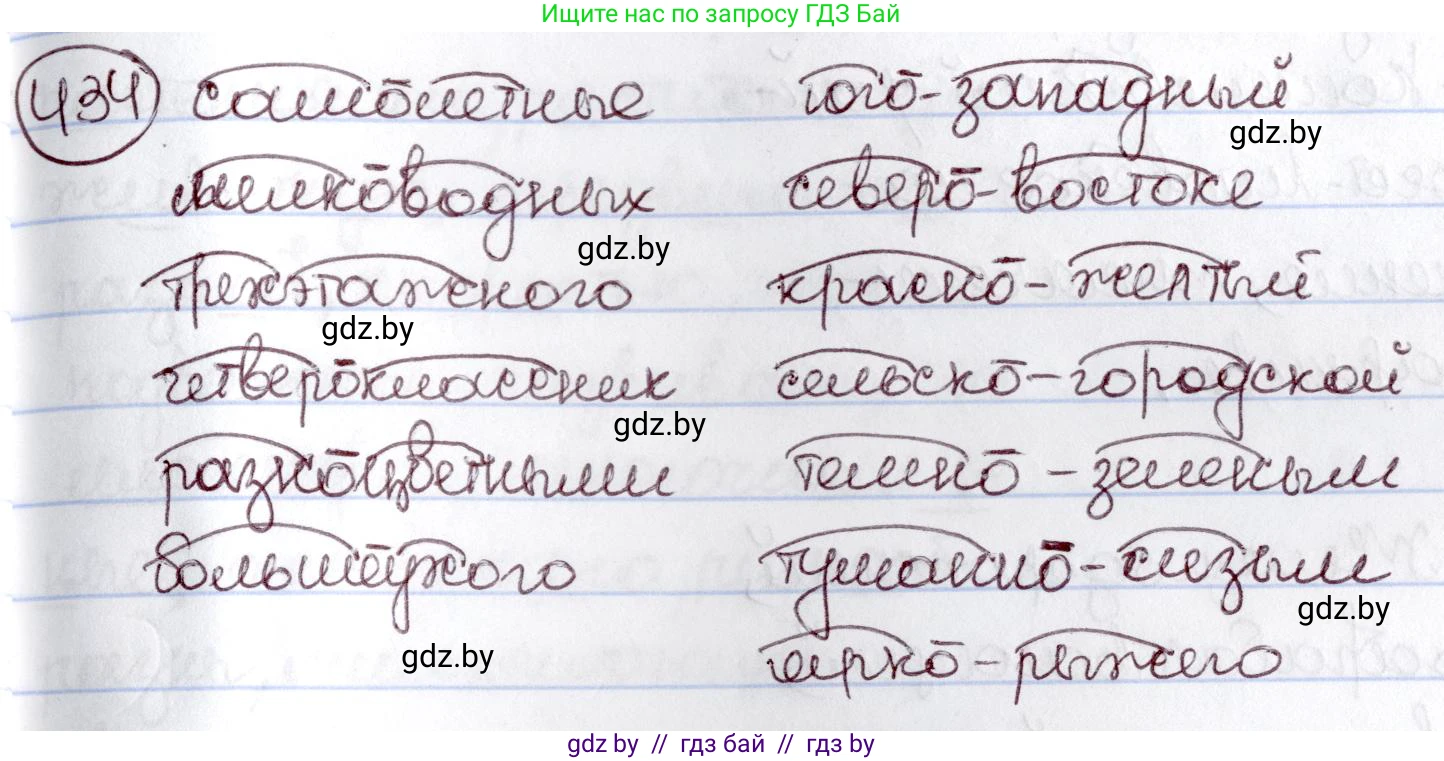 Ищите нас по запросу ГДЗ Бай
434 самолетные юго-западный
gdz.by
мелководных северо-востоке
gdz.by
трехэтажного красно-желтый
gdz.by
четвероклассник сельско-городской
gdz.by
разноцветными темно-зеленым
большеухого туманно-сизым
gdz.by
gdz.by
ярко-рыжего
gdz by // гдз бай // гдз by